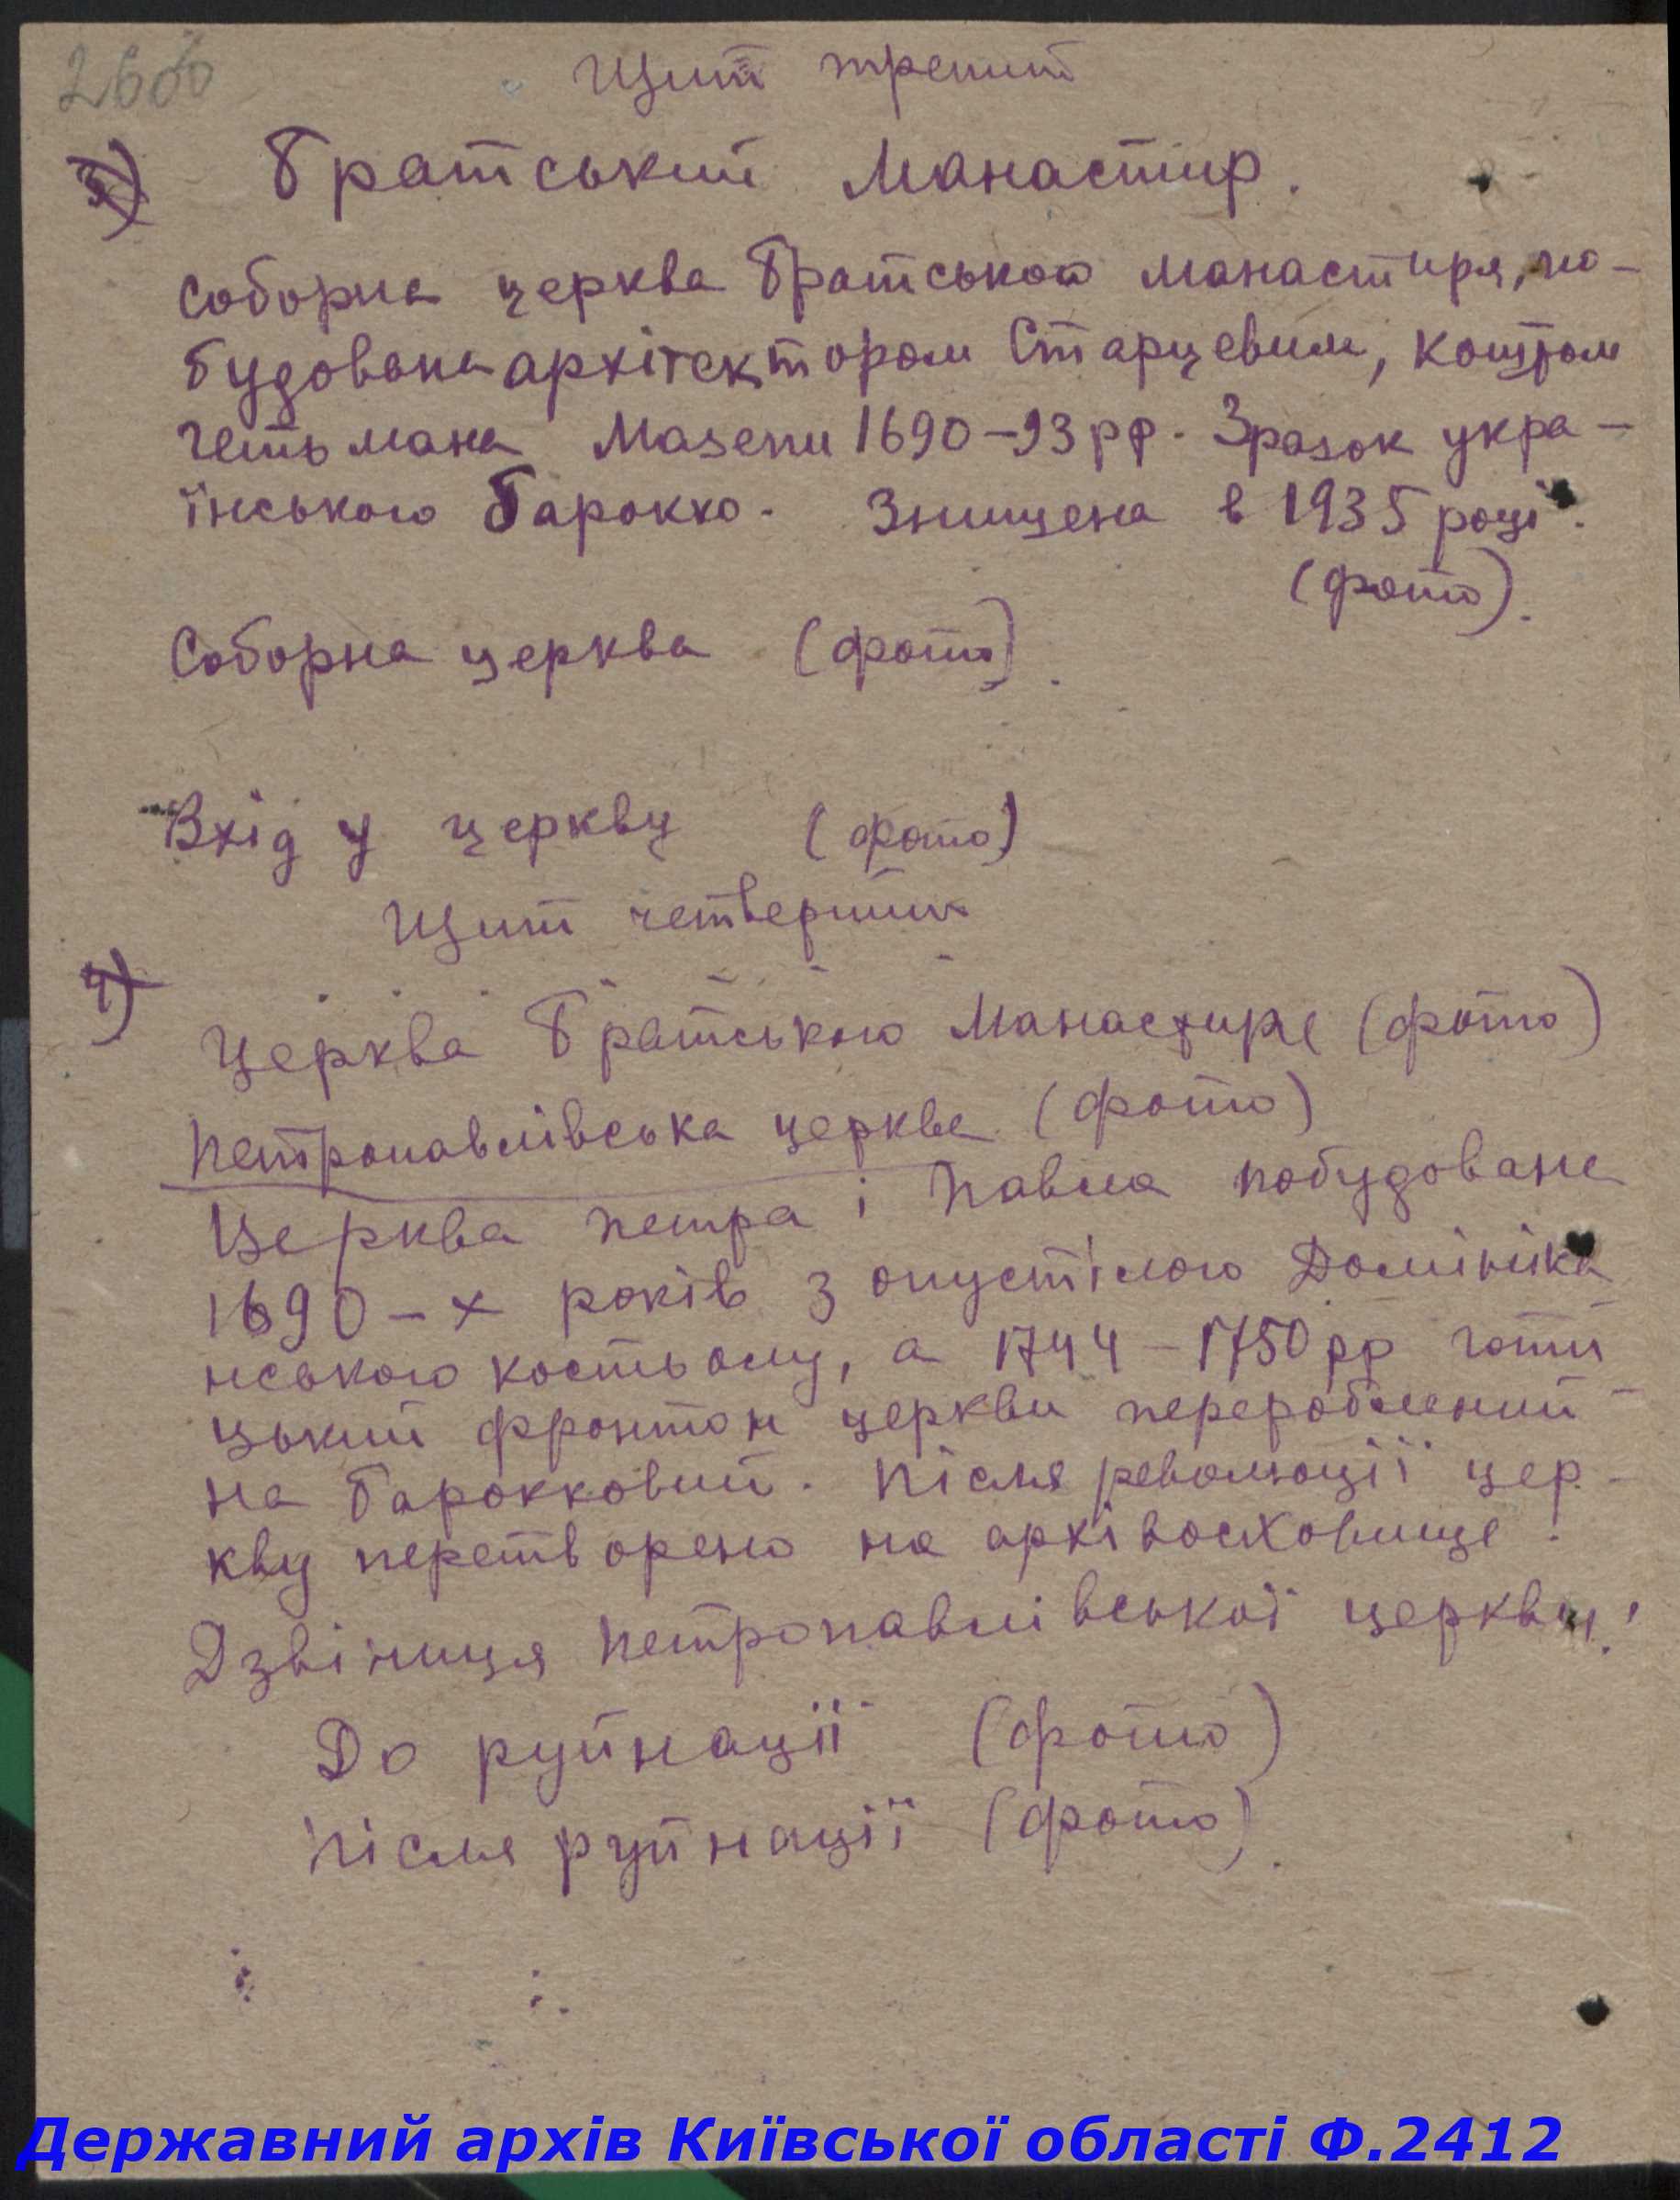 Щит третий
3) Братський Манастир.
Соборна церква Братського манастиря, по-
будована архітектором Старцевим, коштом
гетьмана Мазепи 1690-93 рр. Зразок укра-
їнського барокко. Знищена в 1935 році.
(фото).
Соборна церква (фото).
Вхід у церкву (фото)
Щит четвертий
4)
Церква Братського Манастиря (фото)
Петропавлівська церква (фото)
Церква Петра і Павла побудована
1690-х років з опустілого Домініка
нського костьолу, а 1744-1750 рр готи
цький фронтон церкви перероблений
на барокковий. Після революції цер-
кву перетворено на архівосховище.
Дзвіниця Петропавлівської церкви.
До руйнації (фото)
Після руйнації (фото).
Державний архів Київської області Ф.2412